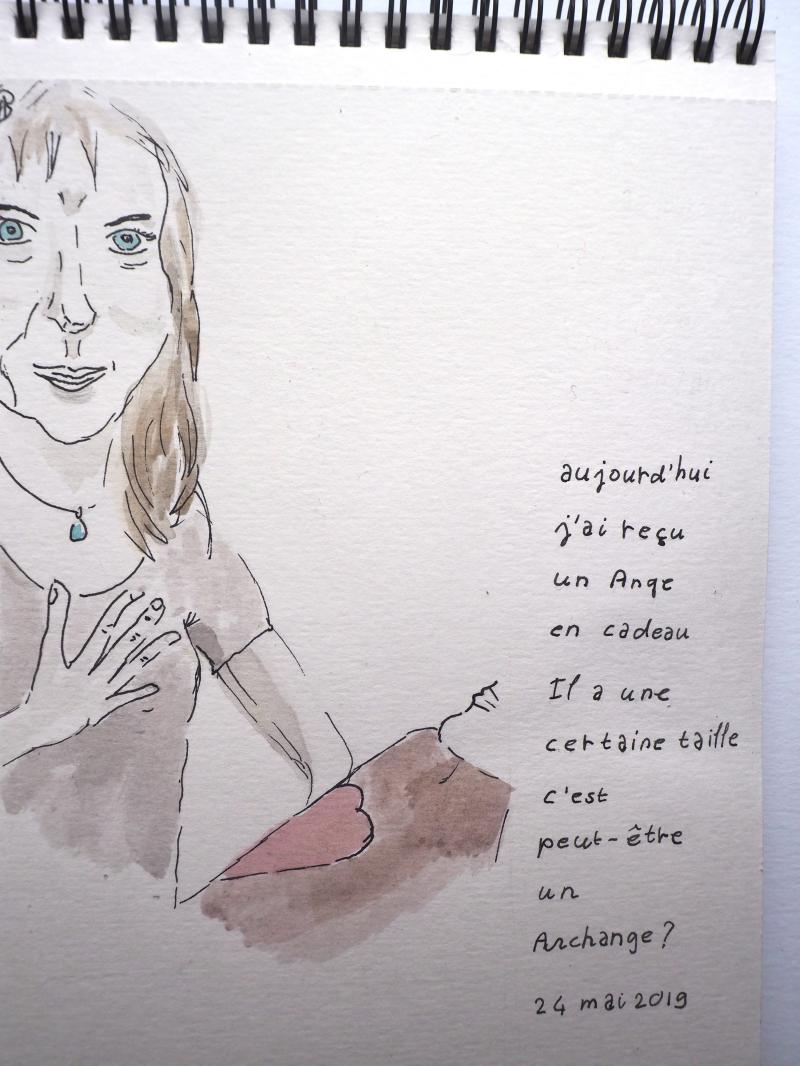 aujourd'hui
j'ai reçu
un Ange
en cadeau
Il a une
certaine taille
c'est
peut-être
un
Archange?
24 mai 2019